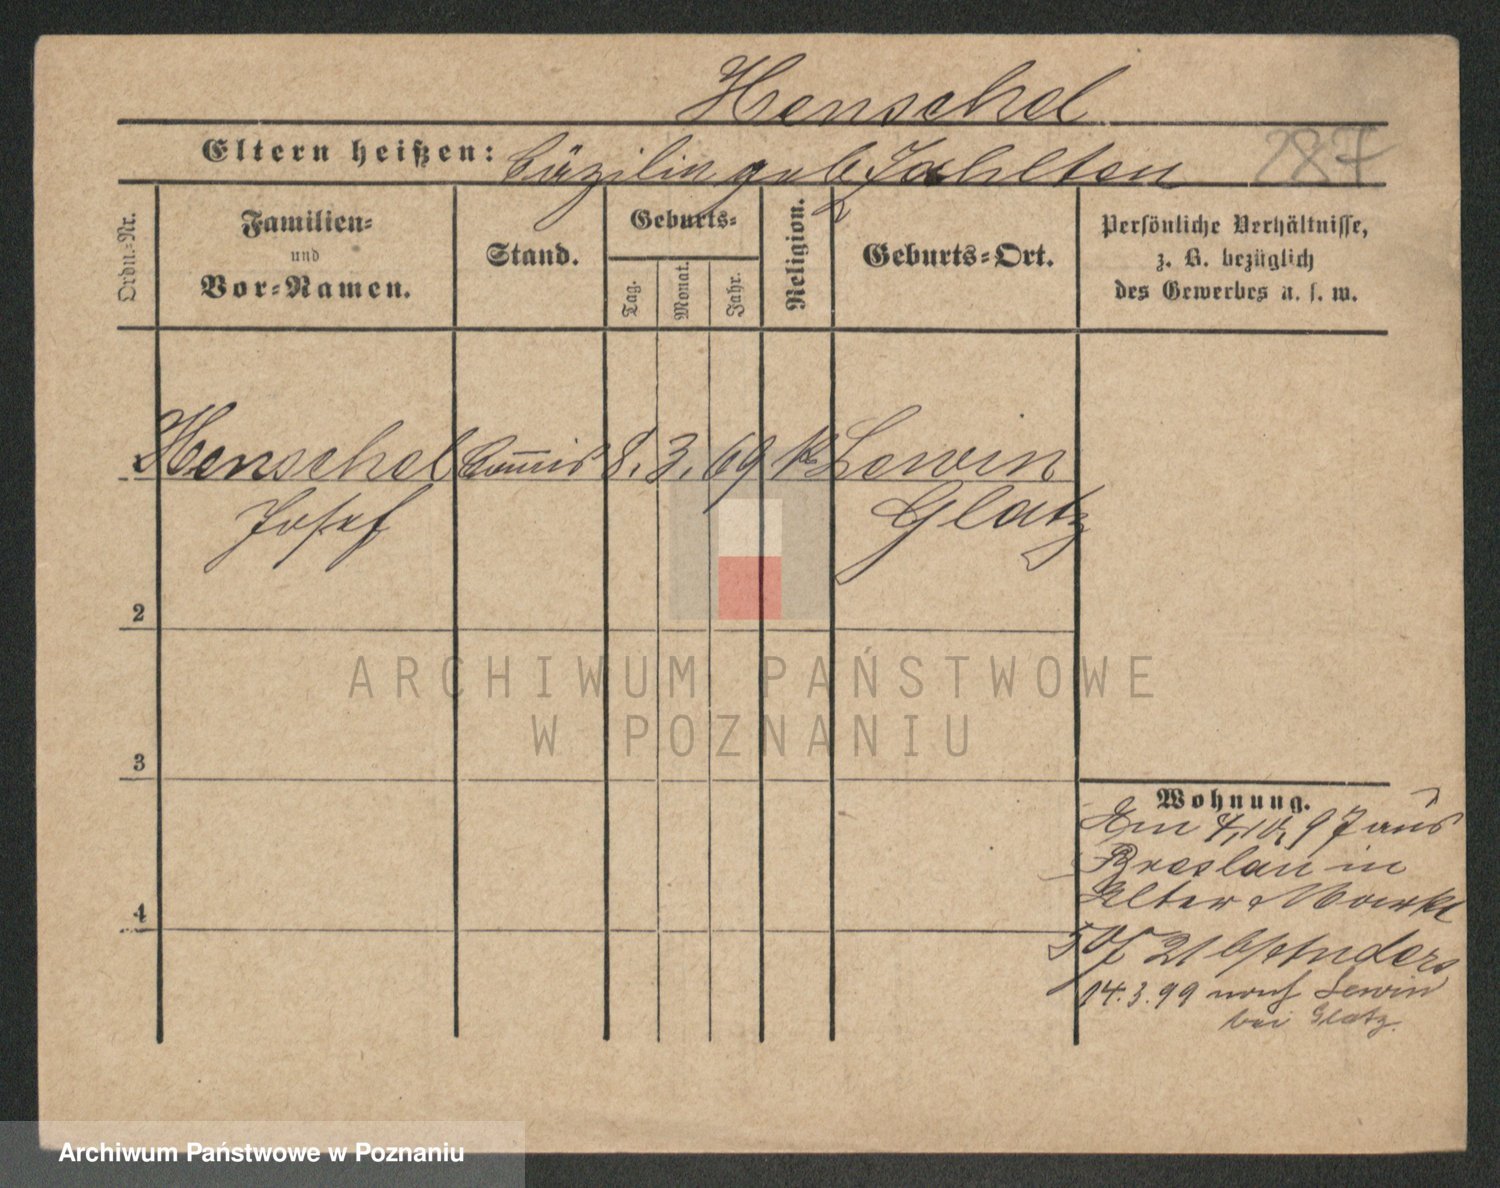 Henschel
287
Eltern heißen: Cäzilie geb Jahlten
Ordn.-Nr.
Familien-
und
Vor-Namen.
Stand.
Geburts-
Tag.
Monat.
Jahr.
Religion.
Geburts-Ort.
Persönliche Verhältnisse,
z. B. bezüglich
des Gewerbes u. s. w.
Henschel Commis 8. 3. 69 k Lewin
Josef Glatz
2
3
4
Wohnung.
Am 4/10 97 aus
Breslau in
Alter Markt
50/ 21 b/
14.3.99 nach Lewin
bei Glatz.
ARCHIWUM PAŃSTWOWE
W POZNANIU
Archiwum Państwowe w Poznaniu